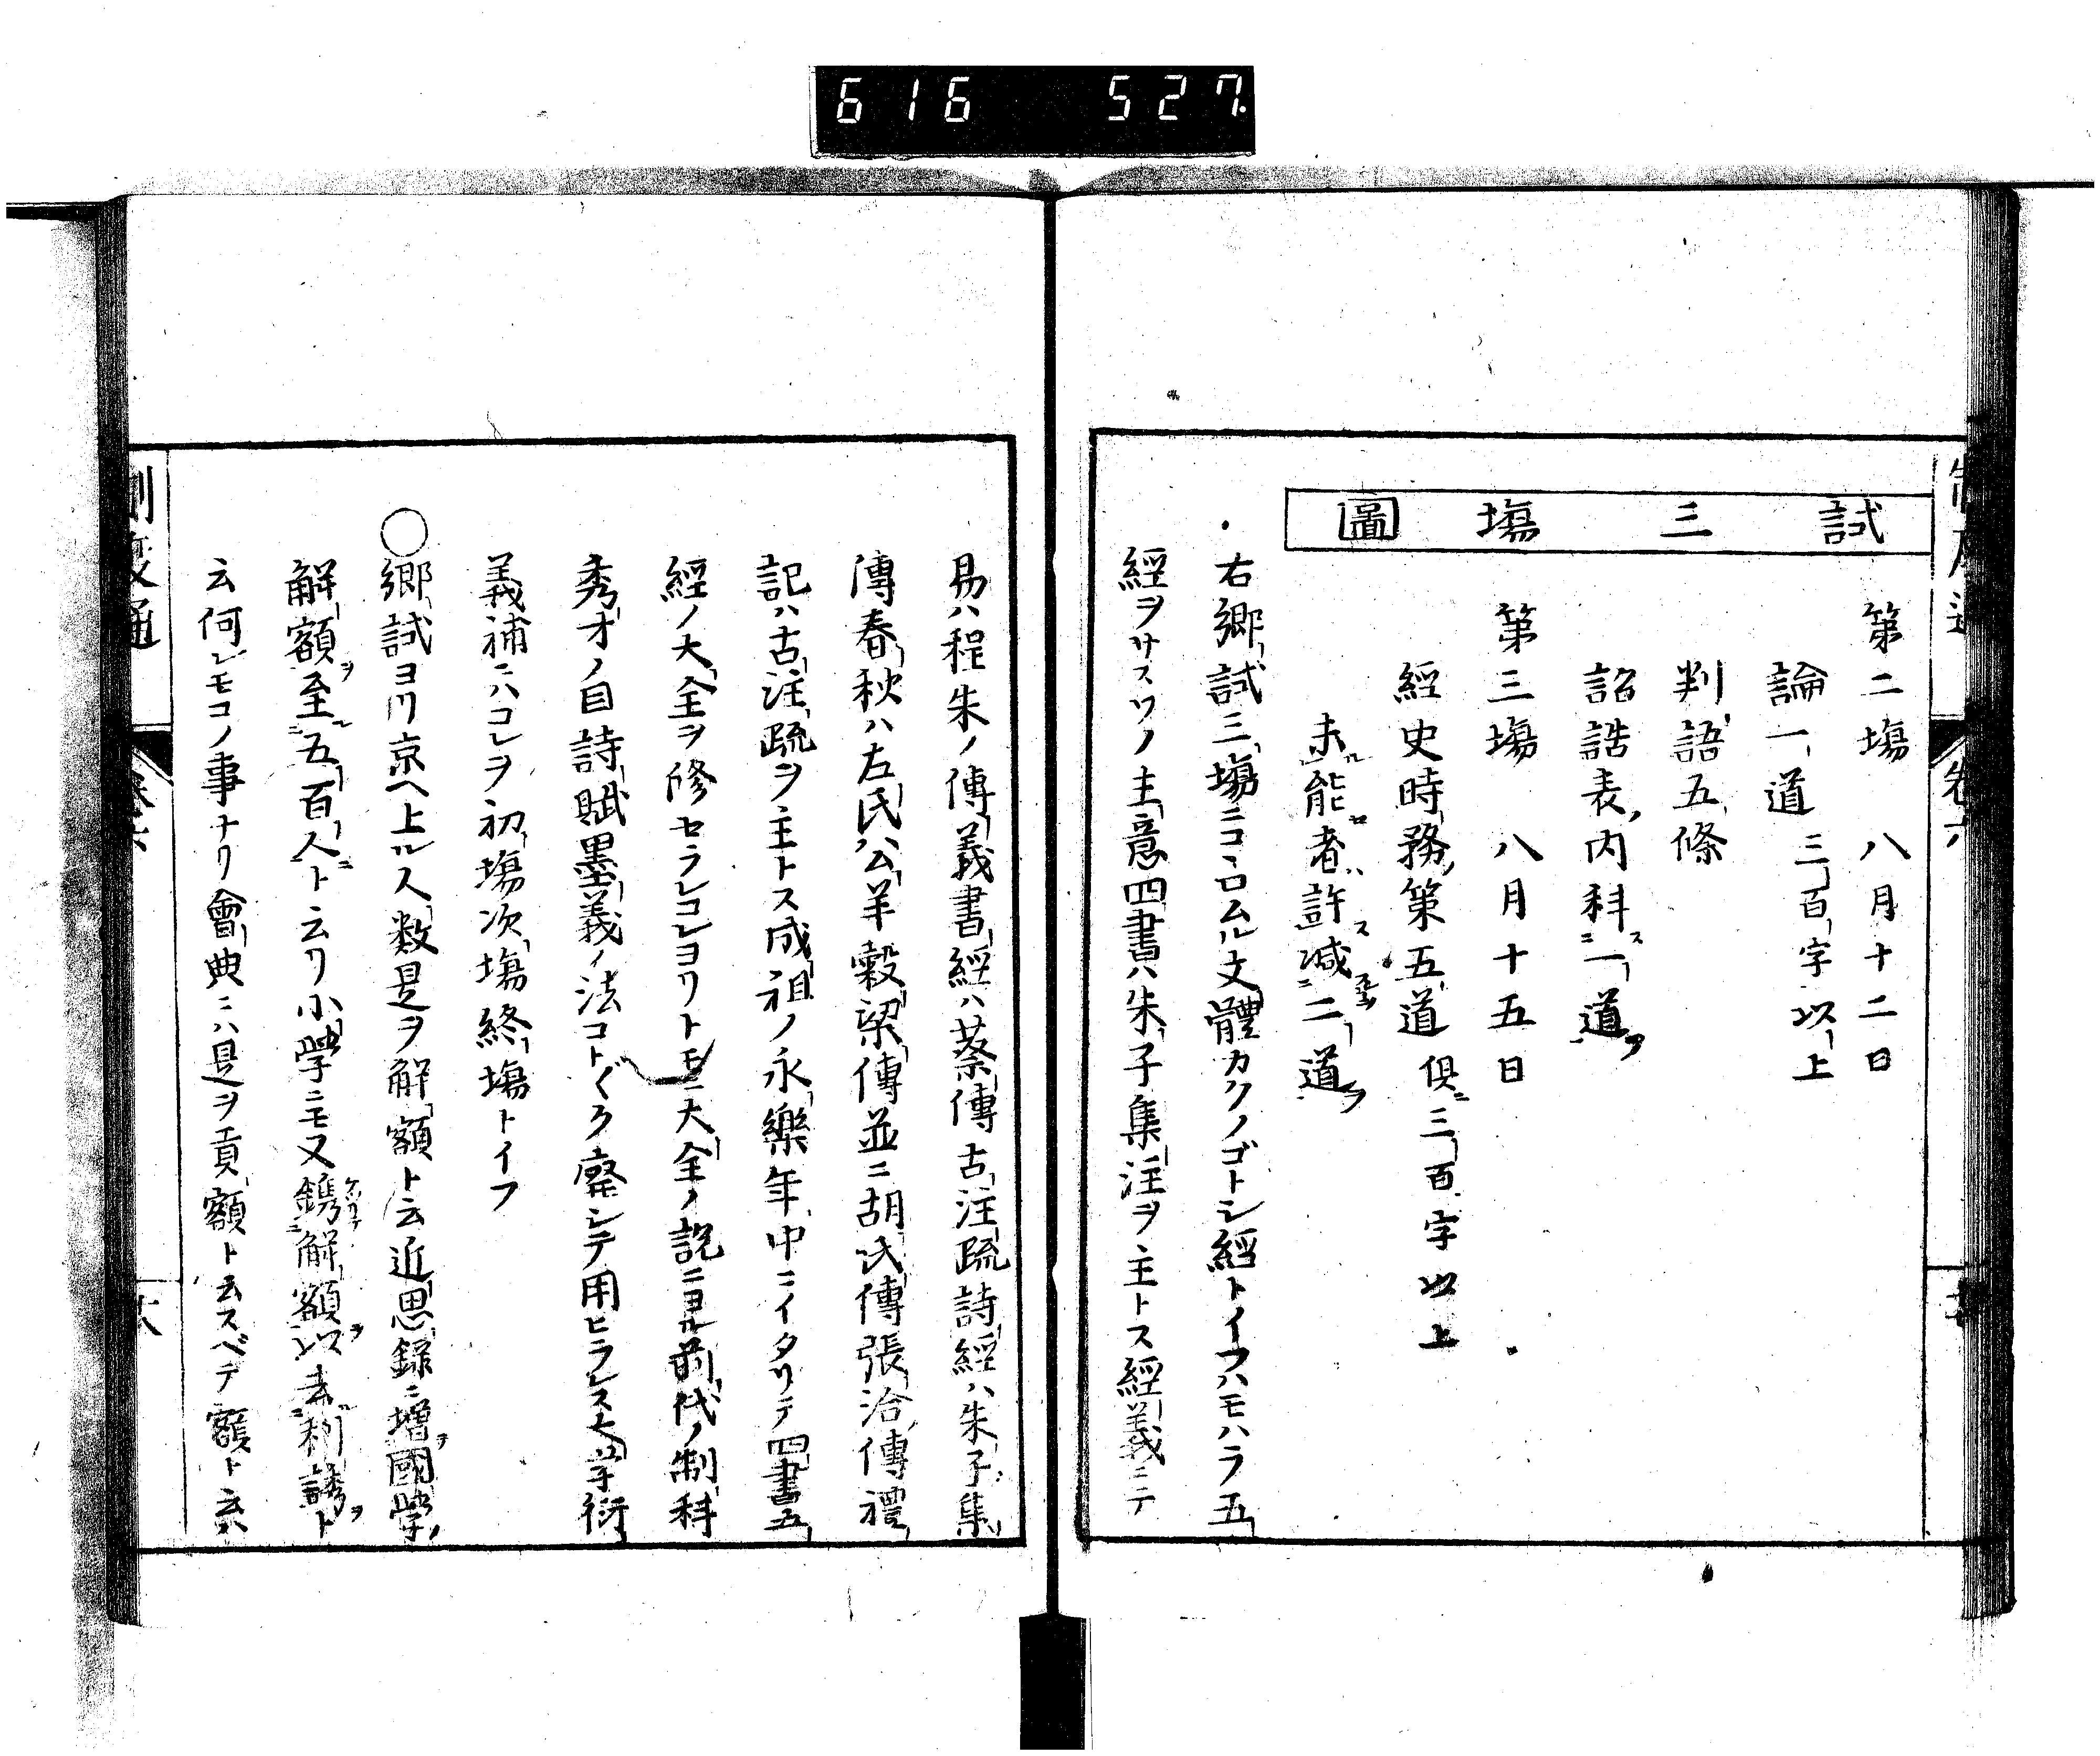 616 527
試三塲圖
第二塲 八月十二日
論一道 三百字以上
判語五條
詔誥表内科一道
第三塲 八月十五日
經史時務策五道 俱三百字以上
未能者許減二道
右鄉試三塲ニコヽロムル文體カクノゴトシ經トイフハモハラ五
經ヲサスソノ主意四書ハ朱子集注ヲ主トス經義ニテ
易ハ程朱ノ傳義書經ハ蔡傳古注疏詩經ハ朱子集
傳春秋ハ左氏公羊穀梁傳並ニ胡氏傳張洽傳禮
記ハ古注疏ヲ主トス成祖ノ永樂年中ニイタリテ四書五
經ノ大全ヲ修セラレコレヨリトモニ大全ノ説ニヨル前代ノ制科
秀才ノ目詩賦墨義ノ法コト〲ク廢シテ用ヒラレス大学衍
義補ニハコレヲ初塲次塲終塲トイフ
○鄉試ヨリ京ヘ上ル人数是ヲ解額ト云近思録ニ増國學
解額至五百人ト云リ小學ニモ又鐫解額以去利誘ト
云何レモコノ事ナリ會典ニハ是ヲ貢額ト云スベテ額ト云ハ
制度通 卷六